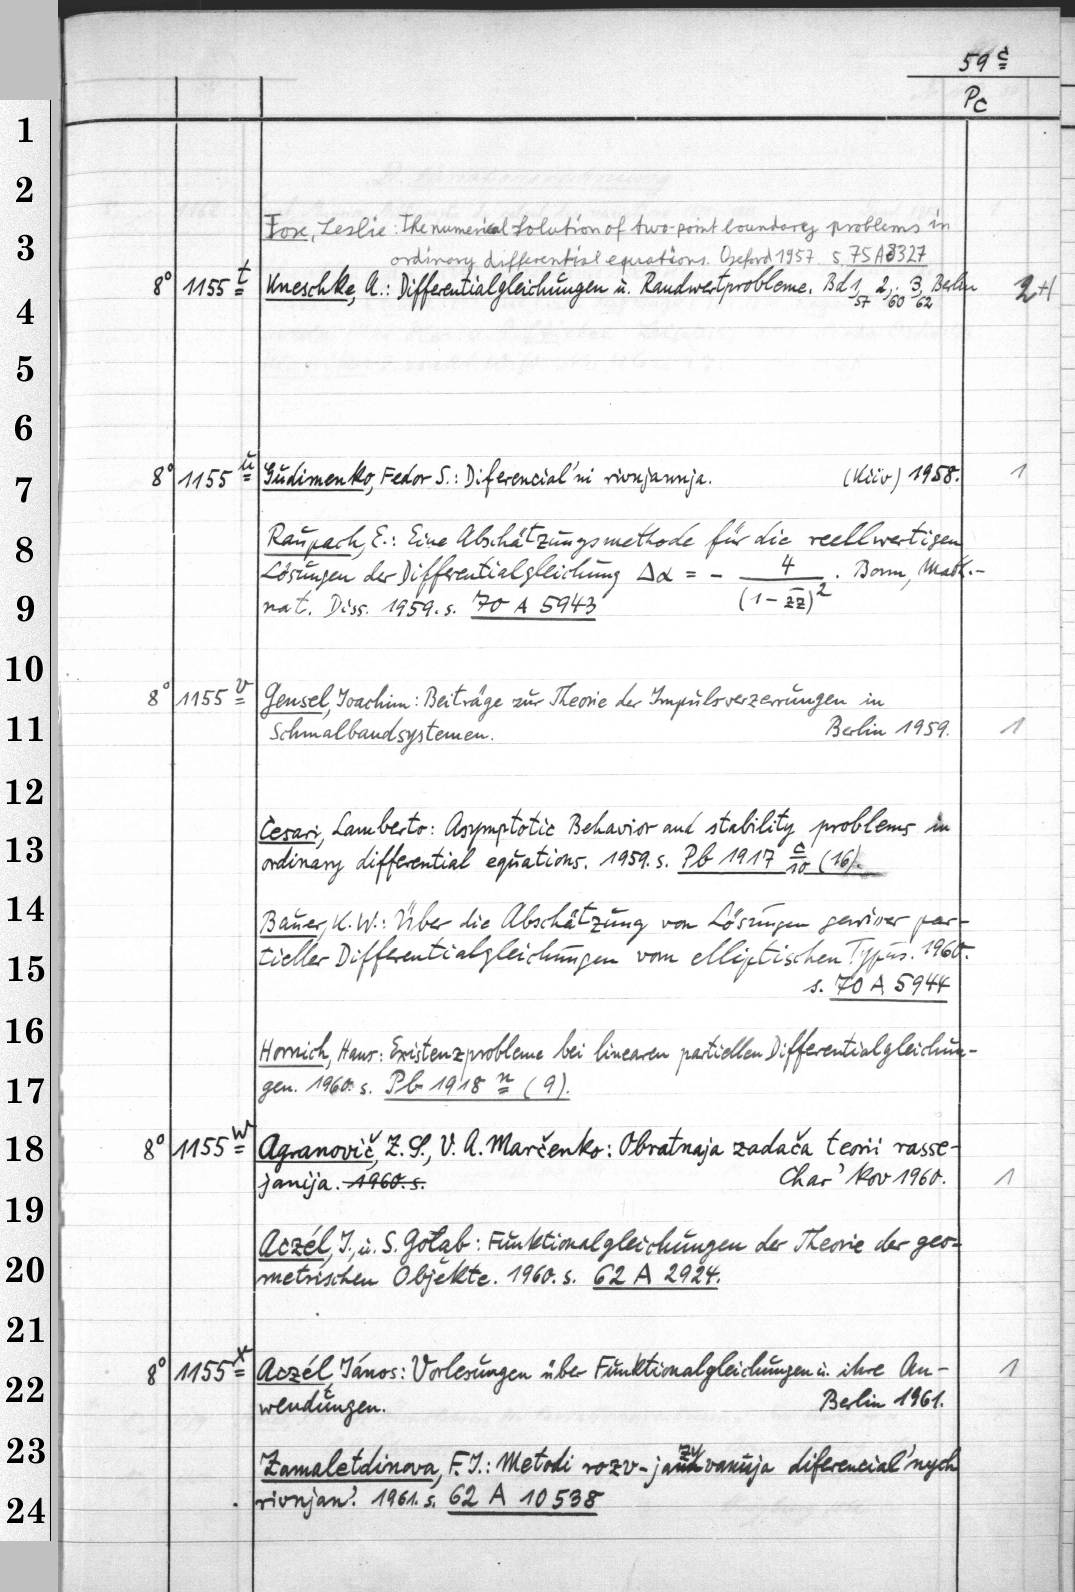 59 c
Pc
Fox, Leslie: The numerical solution of two-point boundary problems in
ordinary differential equations. Oxford 1957 s. 75 A 8327
8° 1155 t Kneschke, A.: Differentialgleichungen u. Randwertprobleme. Bd 1, 57 2, 60 3, 62 Berlin
7 8° 1155 u Gudimenko, Fedor S.: Diferencial'ni rivnjannja. (Kiiv) 1958. 1
Raupach, E.: Eine Abschätzungsmethode für die reellwertigen
Lösungen der Differentialgleichung Δα = - 4 / (1 - zz)² . Bonn, Math.-
nat. Diss. 1959. s. 70 A 5943
8° 1155 v Gensel, Joachim: Beiträge zur Theorie der Impulsverzerrungen in
11 Schmalbandsystemen. Berlin 1959. 1
Cesari, Lamberto: Asymptotic Behavior and stability problems in
13 ordinary differential equations. 1959. s. Pb 1917 c/10 (16).
14 Bauer, K. W.: Über die Abschätzung von Lösungen gewisser par-
15 tieller Differentialgleichungen vom elliptischen Typus. 1960.
s. 70 A 5944
Hornich, Hans: Existenzprobleme bei linearen partiellen Differentialgleichun-
17 gen. 1960. s. Pb 1918 n (9).
18 8° 1155 w Agranovič, Z. S., V. A. Marčenko: Obratnaja zadača teorii rasse-
janija. 1960. s. Char'kov 1960. 1
Aczél, J., u. S. Gołąb: Funktionalgleichungen der Theorie der geo-
20 metrischen Objekte. 1960. s. 62 A 2924.
8° 1155 x Aczél, János: Vorlesungen über Funktionalgleichungen u. ihre An- 1
22 wendungen. Berlin 1961.
23 Zamaletdinova, F. I.: Metodi rozv-jazuvanija diferencial'nych
24 rivnjan'. 1961. s. 62 A 10538